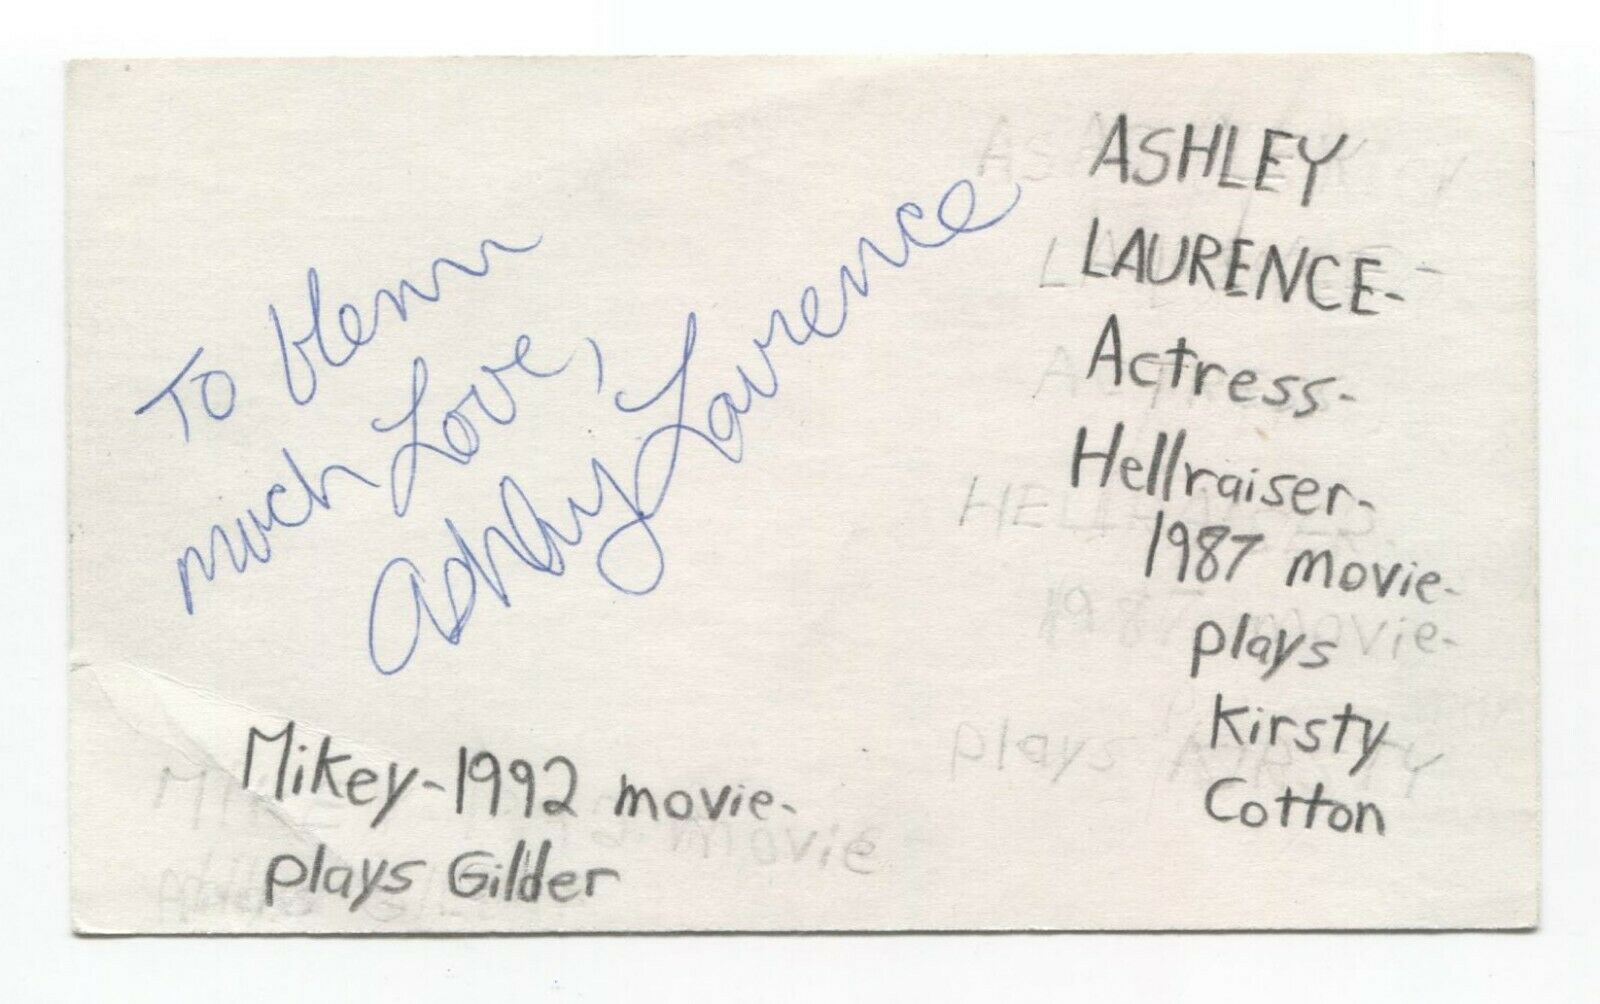 To Henn
much Love,
Ashley Laurence
ASHLEY
LAURENCE-
Actress-
Hellraiser-
1987 movie-
plays
Kirsty
Cotton
Mikey-1992 movie-
plays Gilder